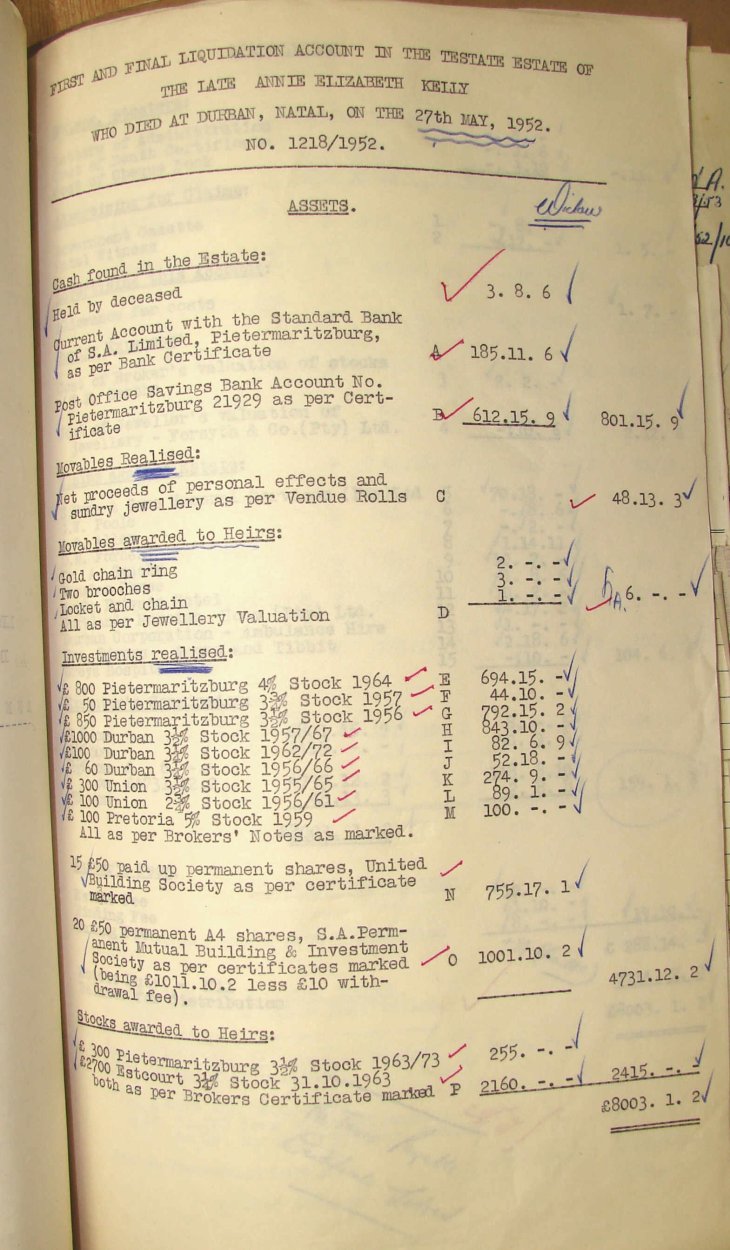 FIRST AND FINAL LIQUIDATION ACCOUNT IN THE TESTATE ESTATE OF
THE LATE ANNIE ELIZABETH KELLY
WHO DIED AT DURBAN, NATAL, ON THE 27th MAY, 1952.
NO. 1218/1952.
ASSETS. Widow
Cash found in the Estate:
Held by deceased 3. 8. 6
Current Account with the Standard Bank
of S.A. Limited, Pietermaritzburg,
as per Bank Certificate A 185.11. 6
Post Office Savings Bank Account No.
Pietermaritzburg 21929 as per Cert-
ificate B 612.15. 9 801.15. 9
Movables Realised:
Net proceeds of personal effects and
sundry jewellery as per Vendue Rolls C 48.13. 3
Movables awarded to Heirs:
Gold chain ring 2. -. -
Two brooches 3. -. -
Locket and chain 1. -. - 6. -. -
All as per Jewellery Valuation D
Investments realised:
£ 800 Pietermaritzburg 4% Stock 1964 E 694.15. -
£ 50 Pietermaritzburg 3¾% Stock 1957 F 44.10. -
£ 850 Pietermaritzburg 3½% Stock 1956 G 792.15. 2
£1000 Durban 3½% Stock 1957/67 H 843.10. -
£100 Durban 3¼% Stock 1962/72 I 82. 6. 9
£ 60 Durban 3¼% Stock 1956/66 J 52.18. -
£ 300 Union 3½% Stock 1955/65 K 274. 9. -
£ 100 Union 2¾% Stock 1956/61 L 89. 1. -
£ 100 Pretoria 5% Stock 1959 M 100. -. -
All as per Brokers' Notes as marked.
15 £50 paid up permanent shares, United
Building Society as per certificate
marked N 755.17. 1
20 £50 permanent A4 shares, S.A.Perm-
anent Mutual Building & Investment
Society as per certificates marked O 1001.10. 2
(being £1011.10.2 less £10 with-
drawal fee). 4731.12. 2
Stocks awarded to Heirs:
£ 300 Pietermaritzburg 3½% Stock 1963/73 255. -. -
£2700 Estcourt 3¼% Stock 31.10.1963
both as per Brokers Certificate marked P 2160. -. - 2415. -. -
£8003. 1. 2